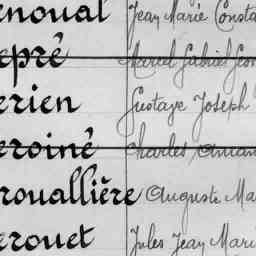 enoual Jean Marie Consta
epré Marcel Gabriel Geor
erien Gustave Joseph
eroiné Charles Aman
rouallière Auguste Ma
erouet Jules Jean Mari